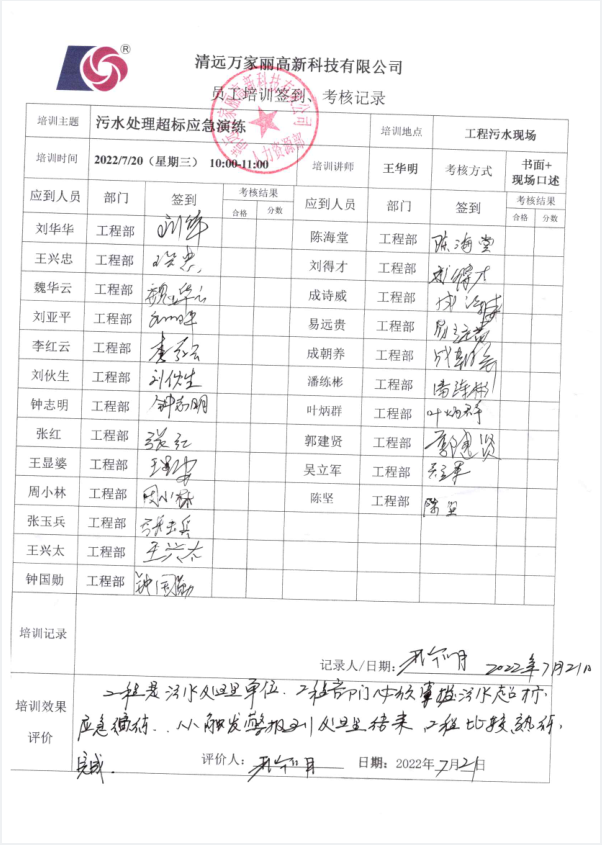 清远万家丽高新科技有限公司
员工培训签到、考核记录
培训主题 污水处理超标应急演练 培训地点 工程污水现场
培训时间 2022/7/20（星期三） 10:00-11:00 培训讲师 王华明 考核方式 书面+现场口述
应到人员 部门 签到 考核结果 应到人员 部门 签到 考核结果
合格 分数 合格 分数
刘华华 工程部 陈海堂 工程部 陈海堂
王兴忠 工程部 刘得才 工程部 刘得才
魏华云 工程部 魏华云 成诗威 工程部
刘亚平 工程部 易远贵 工程部 易远贵
李红云 工程部 李红云 成朝养 工程部
刘伙生 工程部 刘伙生 潘练彬 工程部 潘练彬
钟志明 工程部 钟志明 叶炳群 工程部 叶炳群
张红 工程部 张红 郭建贤 工程部 郭建贤
王显婆 工程部 吴立军 工程部 吴立军
周小林 工程部 周小林 陈坚 工程部 陈坚
张玉兵 工程部 张玉兵
王兴太 工程部 王兴太
钟国勋 工程部 钟国勋
培训记录
记录人/日期： 2022年7月21日
培训效果评价
工程是污水处理单位，工程部门 掌握污水超标，
应急演练，从触发警报到处理结果，工程比较熟练，
完成。 评价人： 日期：2022年7月21日